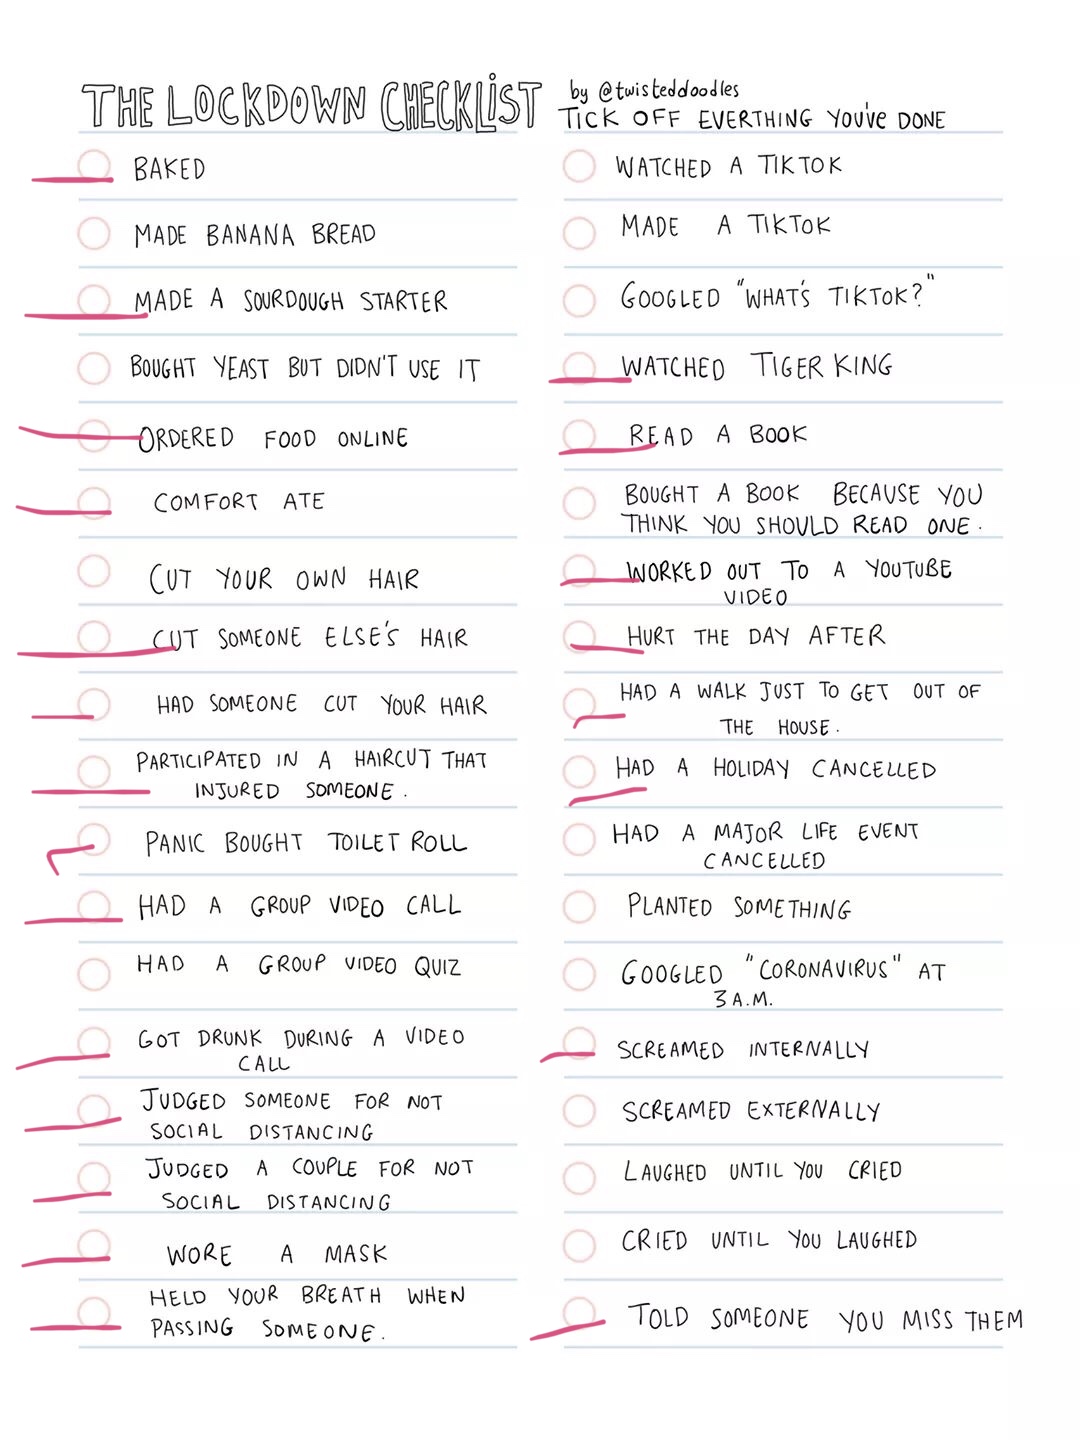 THE LOCKDOWN CHECKLIST
by @twisteddoodles
TICK OFF EVERTHING YOU'VE DONE
BAKED
MADE BANANA BREAD
MADE A SOURDOUGH STARTER
BOUGHT YEAST BUT DIDN'T USE IT
ORDERED FOOD ONLINE
COMFORT ATE
CUT YOUR OWN HAIR
CUT SOMEONE ELSE'S HAIR
HAD SOMEONE CUT YOUR HAIR
PARTICIPATED IN A HAIRCUT THAT
INJURED SOMEONE.
PANIC BOUGHT TOILET ROLL
HAD A GROUP VIDEO CALL
HAD A GROUP VIDEO QUIZ
GOT DRUNK DURING A VIDEO
CALL
JUDGED SOMEONE FOR NOT
SOCIAL DISTANCING
JUDGED A COUPLE FOR NOT
SOCIAL DISTANCING
WORE A MASK
HELD YOUR BREATH WHEN
PASSING SOMEONE.
WATCHED A TIKTOK
MADE A TIKTOK
GOOGLED "WHAT'S TIKTOK?"
WATCHED TIGER KING
READ A BOOK
BOUGHT A BOOK BECAUSE YOU
THINK YOU SHOULD READ ONE.
WORKED OUT TO A YOUTUBE
VIDEO
HURT THE DAY AFTER
HAD A WALK JUST TO GET OUT OF
THE HOUSE.
HAD A HOLIDAY CANCELLED
HAD A MAJOR LIFE EVENT
CANCELLED
PLANTED SOMETHING
GOOGLED "CORONAVIRUS" AT
3 A.M.
SCREAMED INTERNALLY
SCREAMED EXTERNALLY
LAUGHED UNTIL YOU CRIED
CRIED UNTIL YOU LAUGHED
TOLD SOMEONE YOU MISS THEM